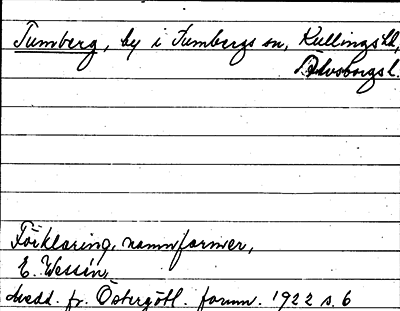 Tumberg, by i Tumbergs sn, Kullings hd,
Älvsborgs l.
Förklaring, namnformer,
E. Wessén,
Medd. fr. Östergötl. fornm. 1922 s. 6